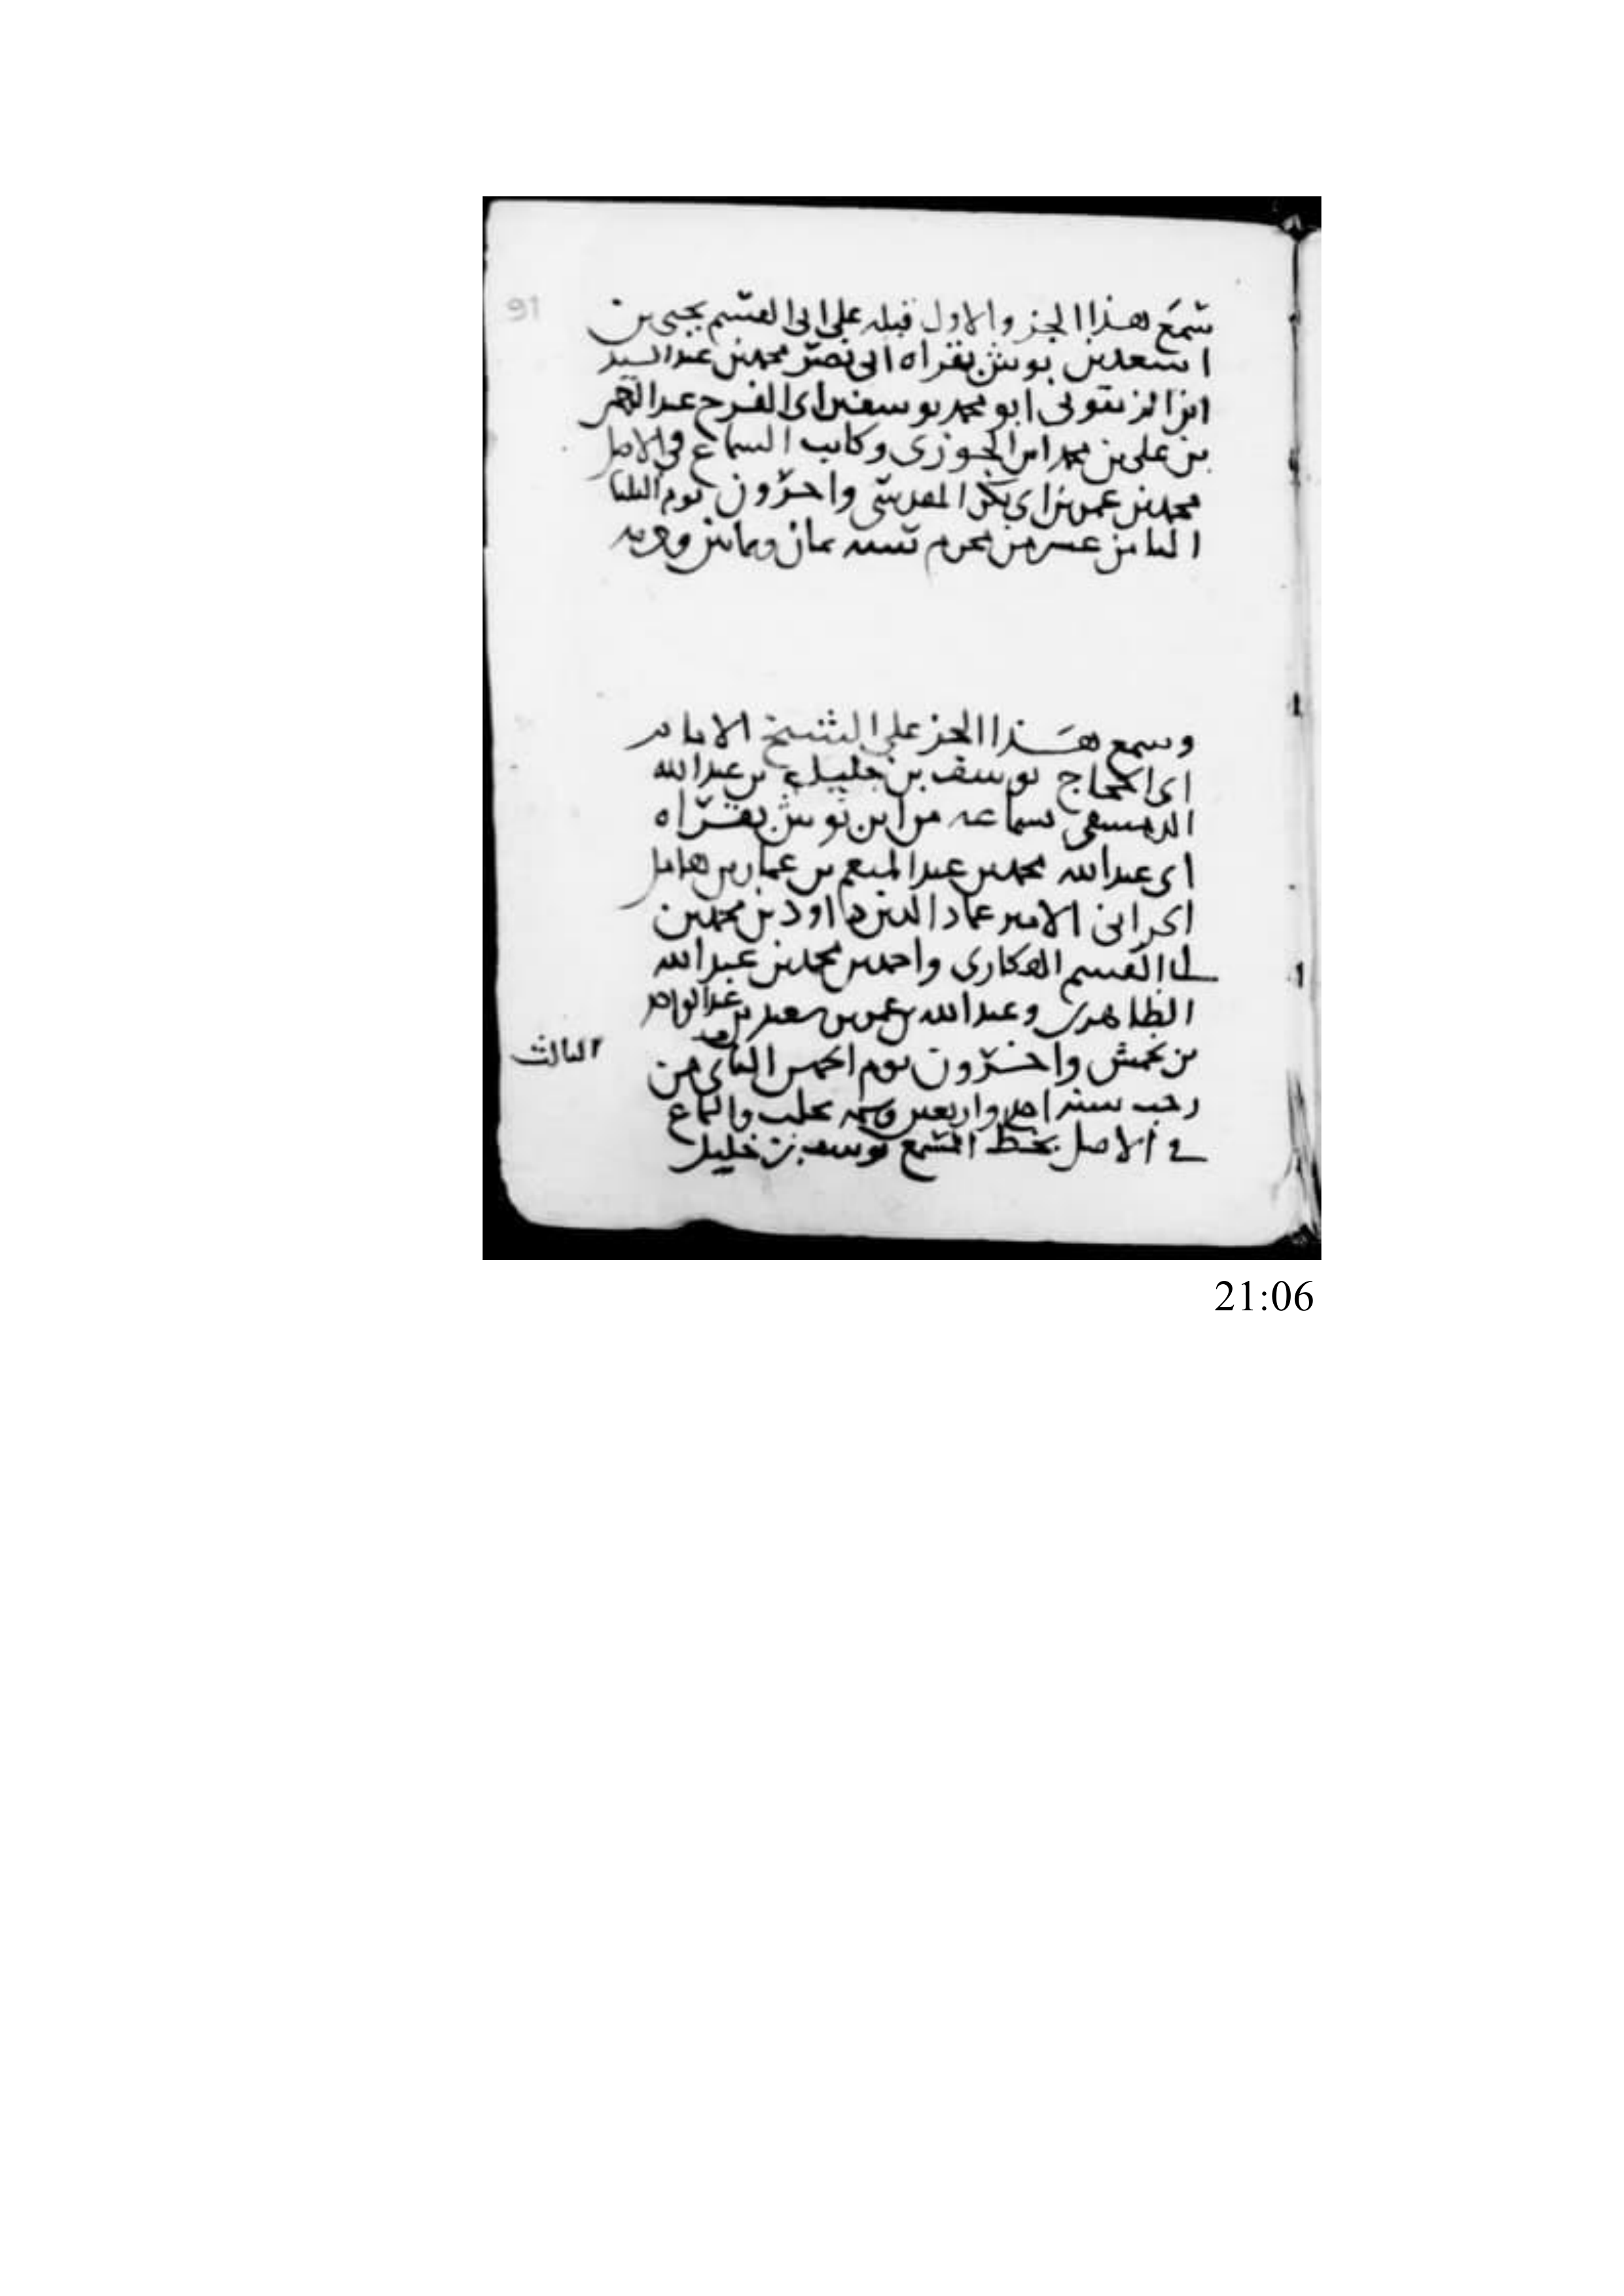 91
سمع هذا الجز والاول قبله على ابى القسم يحيى بن
اسعد بن بوش بقراه ابى نصر محمد بن عبد السيد
ابن الزيتونى ابو محمد يوسف بن ابى الفرج عبد الرحمن
بن على بن محمد ابن الجوزى وكاتب السماع فى الاصل
محمد بن عمر بن ابى بكر المقدسى واخرون يوم الثلثا
الثامن عشر من محرم سنه ثمان وثمانين
وسمع هذا الجز على الشيخ الامام
ابى الحجاج يوسف بن خليل بن عبد الله
الدمشقى بسماعه من ابن بوش بقراه
ابى عبد الله محمد بن عبد المنعم بن عمار بن هامل
الحرانى الامير عماد الدين داود بن محمد بن
ابى القسم الهكارى واحمد بن محمد بن عبد الله
الظاهرى وعبد الله بن عمر بن سعيد بن عبد الواحد
بن بخمش واخرون يوم الخميس الثانى من
الثالث
رجب سنه اربع واربعين بحلب والسماع
فى الاصل بخط المسمع يوسف بن خليل
21:06